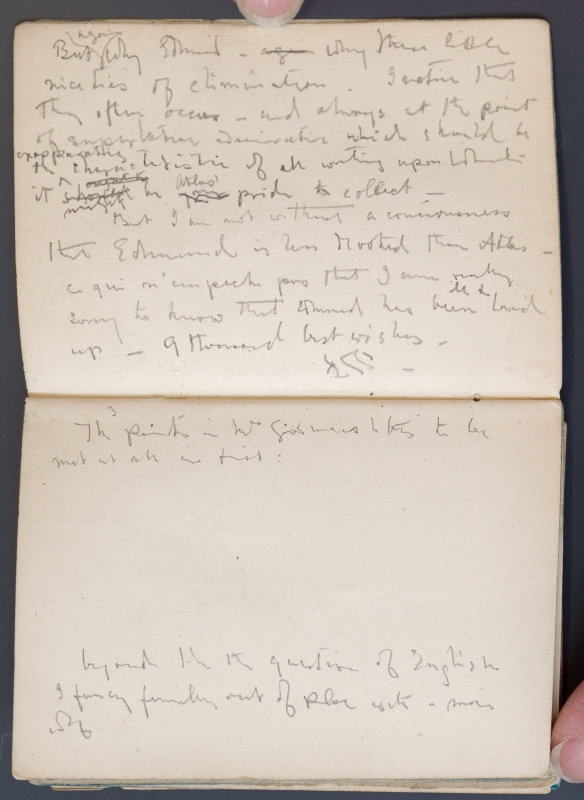 again
But why Edmund - again why these little
niceties of elimination. I notice that
they often occur - and always at the point
of superlative admiration which should be
the characteristic of all writing upon Edmund
it might be Atlas' pride to collect -
But I am not without a conciousness
that Edmund is less Hooked than Atlas -
ce qui n'empeche pas that I am really
sorry to know that Edmund has been ill & laid
up - A thousand best wishes -
The 3 points in Mr
met at all in first:
beyond the question of English
I fancy out of place with a mere